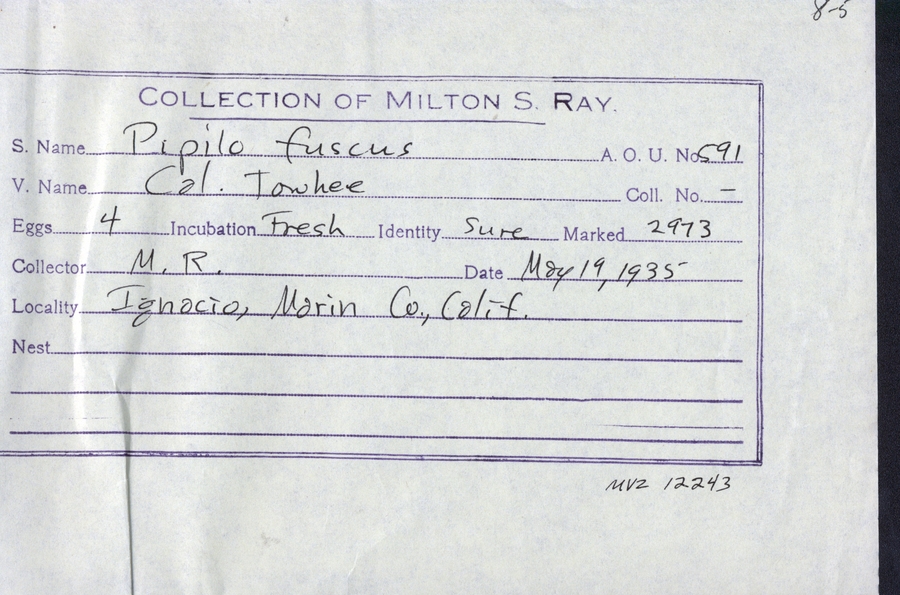 8-5
COLLECTION OF MILTON S. RAY.
S. Name Pipilo fuscus A. O. U. No. 591
V. Name Cal. Towhee Coll. No. —
Eggs 4 Incubation Fresh Identity Sure Marked 2973
Collector M. R. Date May 19, 1935
Locality Ignacio, Marin Co., Calif.
Nest
MVZ 12243